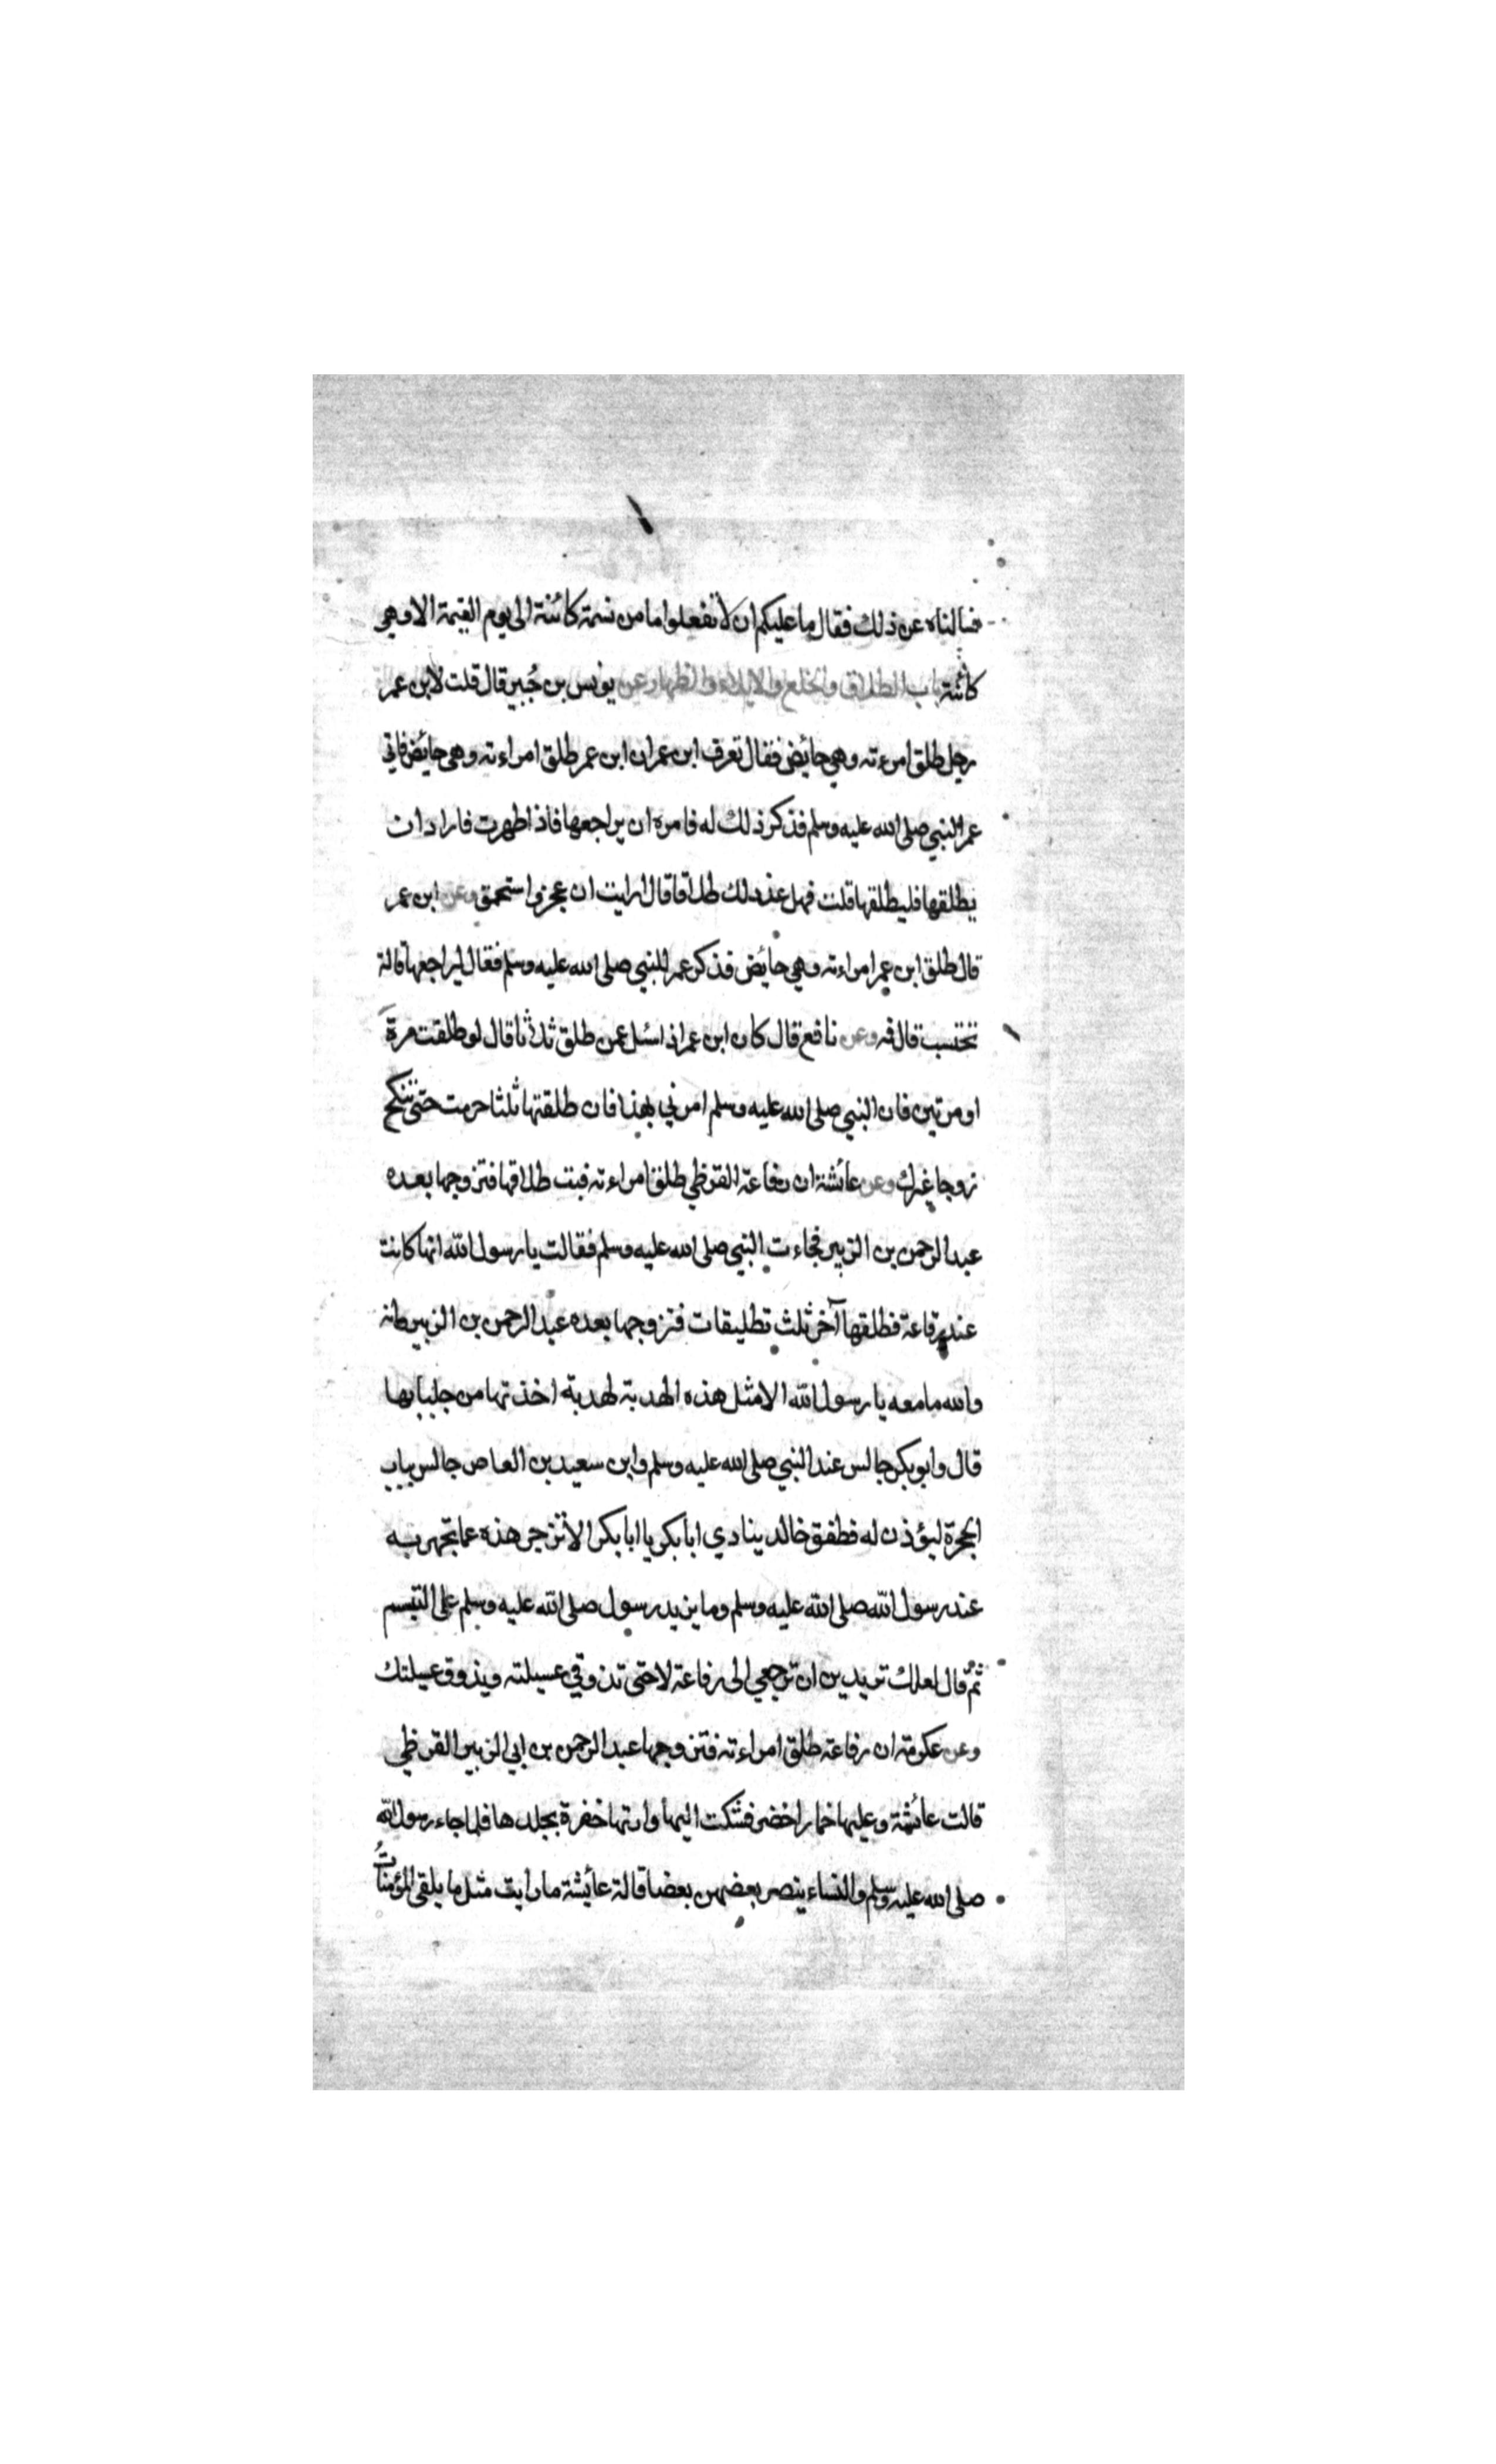 فسالناه عن ذلك فقال ما عليكم ان لا تفعلوا ما من نسمة كائنة الى يوم القيمة الا وهي
كائنة باب الطلاق والخلع والايلاء والظهار عن يونس بن جُبير قال قلت لابن عمر
رجل طلق امرءته وهي حائض فقال تعرف ابن عمر ان ابن عمر طلق امراءته وهي حائض فاتى
عمر النبي صلى الله عليه وسلم فذكر ذلك له فامره ان يراجعها فاذا طهرت فاراد ان
يطلقها فليطلقها قلت فهل عد ذلك طلاقا قال ارايت ان عجز واستحمق وعن ابن عمر
قال طلق ابن عمر امراءته وهي حائض فذكر عمر للنبي صلى الله عليه وسلم فقال ليراجعها قالة
تحتسب قال فمه وعن نافع قال كان ابن عمر اذا سئل عمن طلق ثلاثا قال لو طلقت مرة
او مرتين فان النبي صلى الله عليه وسلم امرني بهذا فان طلقتها ثلثا حرمت حتى تنكح
زوجا غيرك وعن عائشة ان رفاعة القرظي طلق امراءته فبت طلاقها فتزوجها بعده
عبد الرحمن بن الزبير فجاءت النبي صلى الله عليه وسلم فقالت يا رسول الله انها كانت
عند رفاعة فطلقها آخر ثلث تطليقات فتزوجها بعده عبد الرحمن بن الزبير وانه
والله ما معه يا رسول الله الا مثل هذه الهدبة لهدبة اخذتها من جلبابها
قال وابو بكر جالس عند النبي صلى الله عليه وسلم وابن سعيد بن العاص جالس بباب
الحجرة ليؤذن له فطفق خالد ينادي ابا بكر يا ابا بكر الا تزجر هذه عما تجهر به
عند رسول الله صلى الله عليه وسلم وما يزيد رسول صلى الله عليه وسلم على التبسم
ثم قال لعلك تريدين ان ترجعي الى رفاعة لا حتى تذوقي عسيلته ويذوق عسيلتك
وعن عكرمة ان رفاعة طلق امراءته فتزوجها عبد الرحمن بن ابي الزبير القرظي
قالت عائشة وعليها خمار اخضر فشكت اليها وارتها خضرة بجلدها فلما جاء رسول الله
صلى الله عليه وسلم والنساء ينصر بعضهن بعضا قالة عائشة ما رايت مثل ما يلقى المؤمناتُ